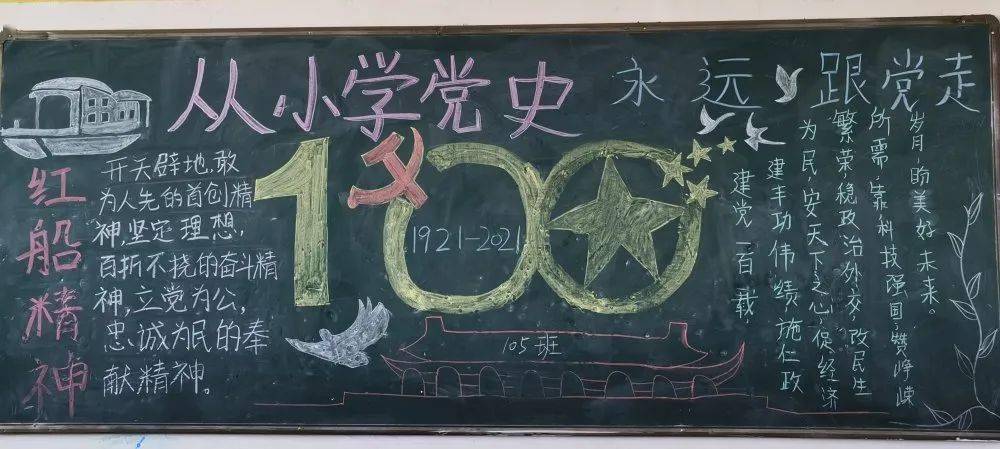 从小学党史
永远跟党走
红船精神
开天辟地、敢
为人先的首创精
神,坚定理想,
百折不挠的奋斗精
神,立党为公,
忠诚为民的奉
献精神。
100
1921-2021
105班
建党一百载,
建丰功伟绩施仁政
为民,安天下之心,促经济
繁荣,稳政治外交,改民生
所需,靠科技强国,赞峥嵘
岁月,盼美好未来。